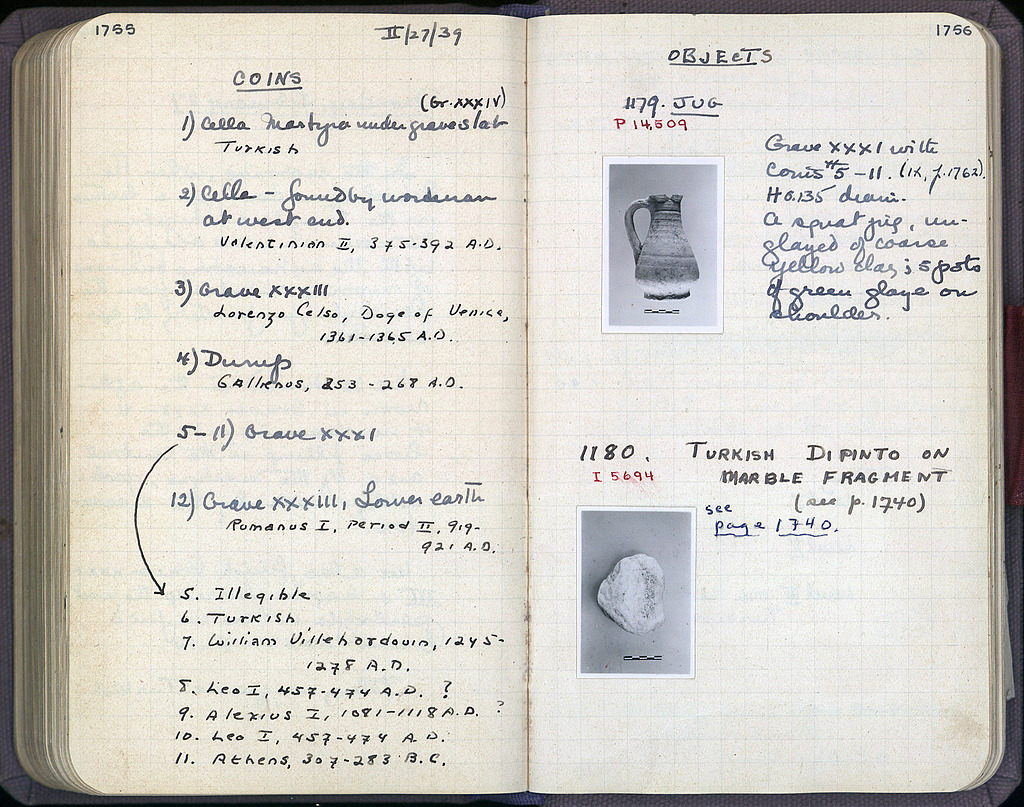 1755
II/27/39
COINS
(Gr. XXXIV)
1) Cella Martyra under grave slab
Turkish
2) Cella – found by workman
at west end.
Valentinian II, 375-392 A.D.
3) Grave XXXIII
Lorenzo Celso, Doge of Venice,
1361-1365 A.D.
4) Dump
Gallienus, 253 - 268 A.D.
5-11) Grave XXXI
12) Grave XXXIII, Lower earth
Romanus I, Period II, 919-
921 A.D.
5. Illegible
6. Turkish
7. William Villehardouin, 1245-
1278 A.D.
8. Leo I, 457-474 A.D. ?
9. Alexius I, 1081-1118 A.D. ?
10. Leo I, 457-474 A.D.
11. Athens, 307-283 B.C.
1756
OBJECTS
1179. JUG
P 14,509
Grave XXXI with
Coins #5-11. (IX, p.1762).
H 0.135 diam.
A squat jug, un-
glazed of coarse
yellow clay; 5 spots
of green glaze on
shoulder.
1180. TURKISH DIPINTO ON
I 5694 MARBLE FRAGMENT
(see p. 1740)
see
page 1740.